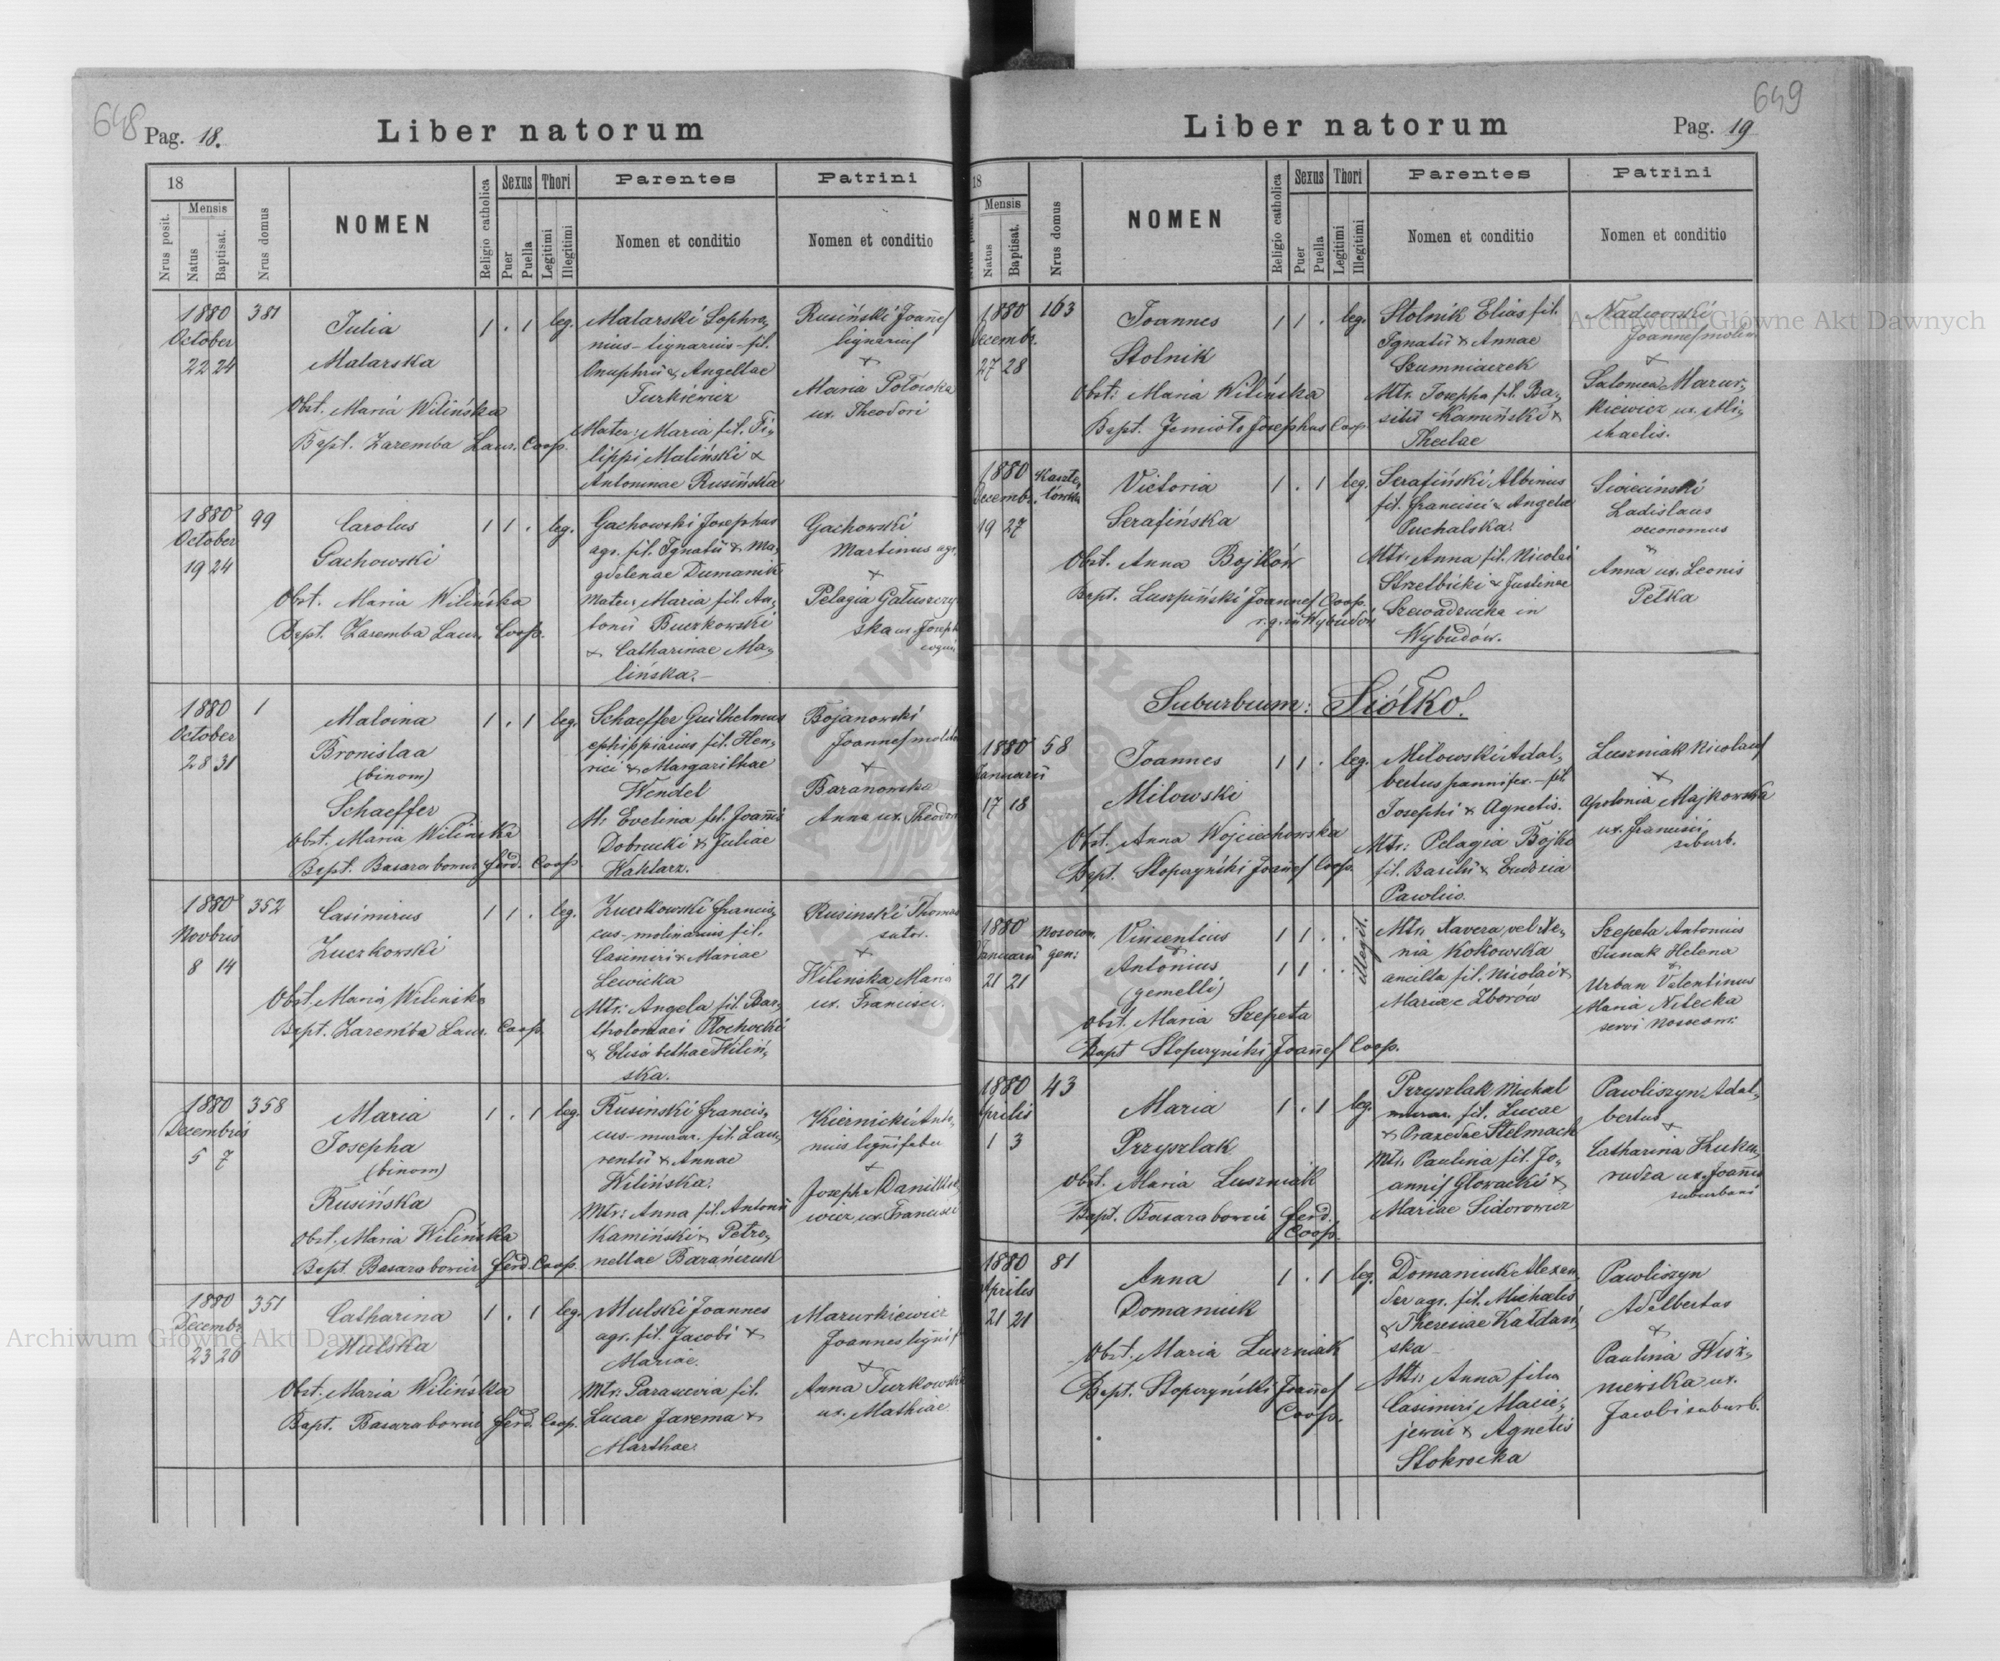 648
Pag. 18.
Liber natorum
18
Nrus posit.
Mensis
Natus
Baptisat.
Nrus domus
NOMEN
Religio catholica
Sexus
Puer
Puella
Thori
Legitimi
Illegitimi
Parentes
Nomen et conditio
Patrini
Nomen et conditio
1880 381
October
22 24
Julia
Malarska
1 . 1 leg.
Obst. Maria Wilińska
Bapt. Zaremba Laur. Coop.
Malarski Sophro-
nius - lignarius - fil.
Onuphrii & Angellae
Turkiewicz
Mater: Maria fil. Fi-
lippi Maliński &
Antoninae Rusińska
Rusiński Joannes
lignarius
&
Maria
ux. Theodori
1880 99
October
19 24
Carolus
Gachowski
1 1 . leg.
Obst. Maria Wilińska
Bapt. Zaremba Laur. Coop.
Gachowski Josephus
agr. fil. Ignatii & Ma-
gdalenae Dumanik
Mater: Maria fil. An-
tonii Buczkowski
& Catharinae Ma-
lińska.
Gachowski
Martinus agr.
&
Pelagia
ska ux. Joseph
1880 1
October
28 31
Malvina
Bronislaa
(binom)
Schaeffer
1 . 1 leg.
Obst. Maria Wilińska
Bapt. Basarabowicz Ferd. Coop.
Schaeffer Guilhelmus
ephippiarius fil. Hen-
rici & Margarithae
Wendel
M: Evelina fil. Joannis
Dobrucki & Juliae
Kahlarz.
Bojanowski
Joannes
&
Baranowska
Anna ux. Theodori
1880 352
Novbris
8 14
Casimirus
Zuczkowski
1 1 . leg.
Obst. Maria Wilińska
Bapt. Zaremba Laur. Coop.
Zuczkowski Francis-
cus - molinarius fil.
Casimiri & Mariae
Lewicka
Mtr: Angela fil. Bar-
tholomaei Płochocki
& Elisabethae Wiliń-
ska.
Rusinski Thomas
sutor.
&
Wilińska Maria
ux. Francisci.
1880 358
Decembris
5 7
Maria
Josepha
(binom)
Rusińska
1 . 1 leg.
Obst. Maria Wilińska
Bapt. Basarabowicz Ferd. Coop.
Rusinski Francis-
cus - murar. fil. Lau-
rentii & Annae
Wilińska.
Mtr: Anna fil. Antonii
Kamiński & Petro-
nellae Barańczuk
Kiernicki Anto-
nius lignifaber
&
Josepha Danilke-
wicz ux. Francisci
1880 351
Decembr.
23 26
Catharina
Mulska
1 . 1 leg.
Obst. Maria Wilińska
Bapt. Basarabowicz Ferd. Coop.
Mulski Joannes
agr. fil. Jacobi &
Mariae.
Mtr: Parascevia fil.
Lucae Jarema &
Marthae.
Mazurkiewicz
Joannes lignif.
&
Anna Turkowska
ux. Mathiae
649
Liber natorum
Pag. 19
18
Mensis
Natus
Baptisat.
Nrus domus
NOMEN
Religio catholica
Sexus
Puer
Puella
Thori
Legitimi
Illegitimi
Parentes
Nomen et conditio
Patrini
Nomen et conditio
1880 163
Decembr.
27 28
Joannes
Stolnik
1 1 . leg.
Obst: Maria Wilińska
Bapt. Jemioło Josephus Coop.
Stolnik Elias fil.
Ignatii & Annae
Szumniaczek
Mtr. Josepha fil. Ba-
silii Kamiński &
Theclae
Nadworski
Joannes molin.
&
Salomea Mazur-
kiewicz ux. Mi-
chaelis.
1880
Decembr.
19 27
Victoria
Serafińska
1 . 1 leg.
Obst. Anna Bojków
Bapt. Joannes Coop.
Serafiński Albinus
fil. Francisci & Angelae
Puchalska.
Mtr: Anna fil. Nicolai
Strzelbicki & Justinae
in
Wybudów.
Siwiecinski
Ladislaus
oeconomus
&
Anna ux. Leonis
Pełka
Suburbium: Siółko.
1880 58
Januarii
17 18
Joannes
Milowski
1 1 . leg.
Obst. Anna Wojciechowska
Bapt. Stopczyński Joannes Coop.
Milowski Adal-
bertus pannifex. - fil
Josephi & Agnetis.
Mtr: Pelagia Bojko
fil. Basilii & Eudoxia
Pawlus.
Luszniak Nicolaus
&
Apolonia Majkowska
ux. Francisci
suburb.
1880 Nosocom.
Januarii gen:
21 21
Vincentius
&
Antonius
(gemelli)
1 1 . .
1 1 . .
illegit.
Obst. Maria Szepeta
Bapt Stopczyński Joannes Coop.
Mtr. Xavera vel Xe-
nia Kotłowska
ancilla fil. Nicolai &
Mariae Zborów
Szepeta Antonius
Junak Helena
&
Urban Valentinus
Maria Nitecka
servi Nosocom:
1880 43
Aprilis
1 3
Maria
Przyszlak
1 . 1 leg.
Obst. Maria Luszniak
Bapt. Basarabowicz Ferd.
Coop.
Przyszlak Michael
murar. fil. Lucae
& Praxedae Stelmach
Mtr. Paulina fil. Jo-
annis Głowacki &
Mariae Sidorowicz
Pawliszyn Adal-
bertus
&
Catharina Kuku-
rudza ux. Joannis
suburbani
1880 81
Aprilis
21 21
Anna
Domaniuk
1 . 1 leg.
Obst. Maria Luszniak
Bapt. Stopczyński Joannes
Coop.
Domaniuk Alexan-
der agr. fil. Michaelis
& Theresiae Kałdań-
ska
Mtr. Anna filia
Casimiri Macie-
jewicz & Agnetis
Stokrocka
Pawliszyn
Adelbertus
&
Paulina Wisz-
niewska ux.
Jacobi suburb.
Archiwum Główne Akt Dawnych
Archiwum Główne Akt Dawnych